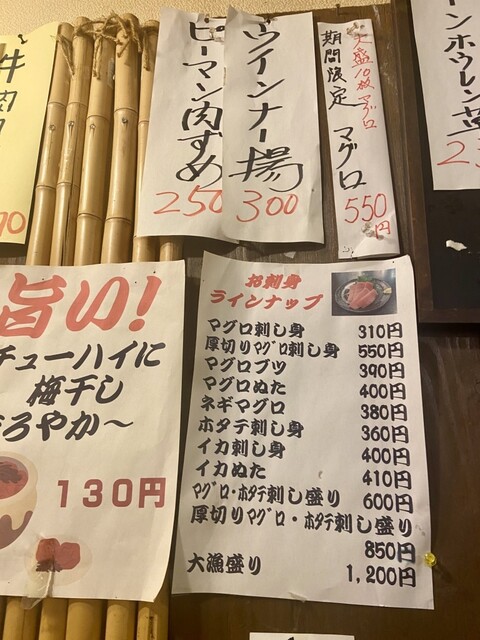 牛肉
ピーマン肉ずめ
250
ウインナー揚
300
大盛10枚マグロ
期間限定 マグロ
550円
ーンホウレン草
旨い!
チューハイに
梅干し
ろやか～
130円
お刺身
ラインナップ
マグロ刺し身 310円
厚切りマグロ刺し身 550円
マグロブツ 390円
マグロぬた 400円
ネギマグロ 380円
ホタテ刺し身 360円
イカ刺し身 400円
イカぬた 410円
マグロ・ホタテ刺し盛り 600円
厚切りマグロ・ホタテ刺し盛り
850円
大漁盛り 1,200円